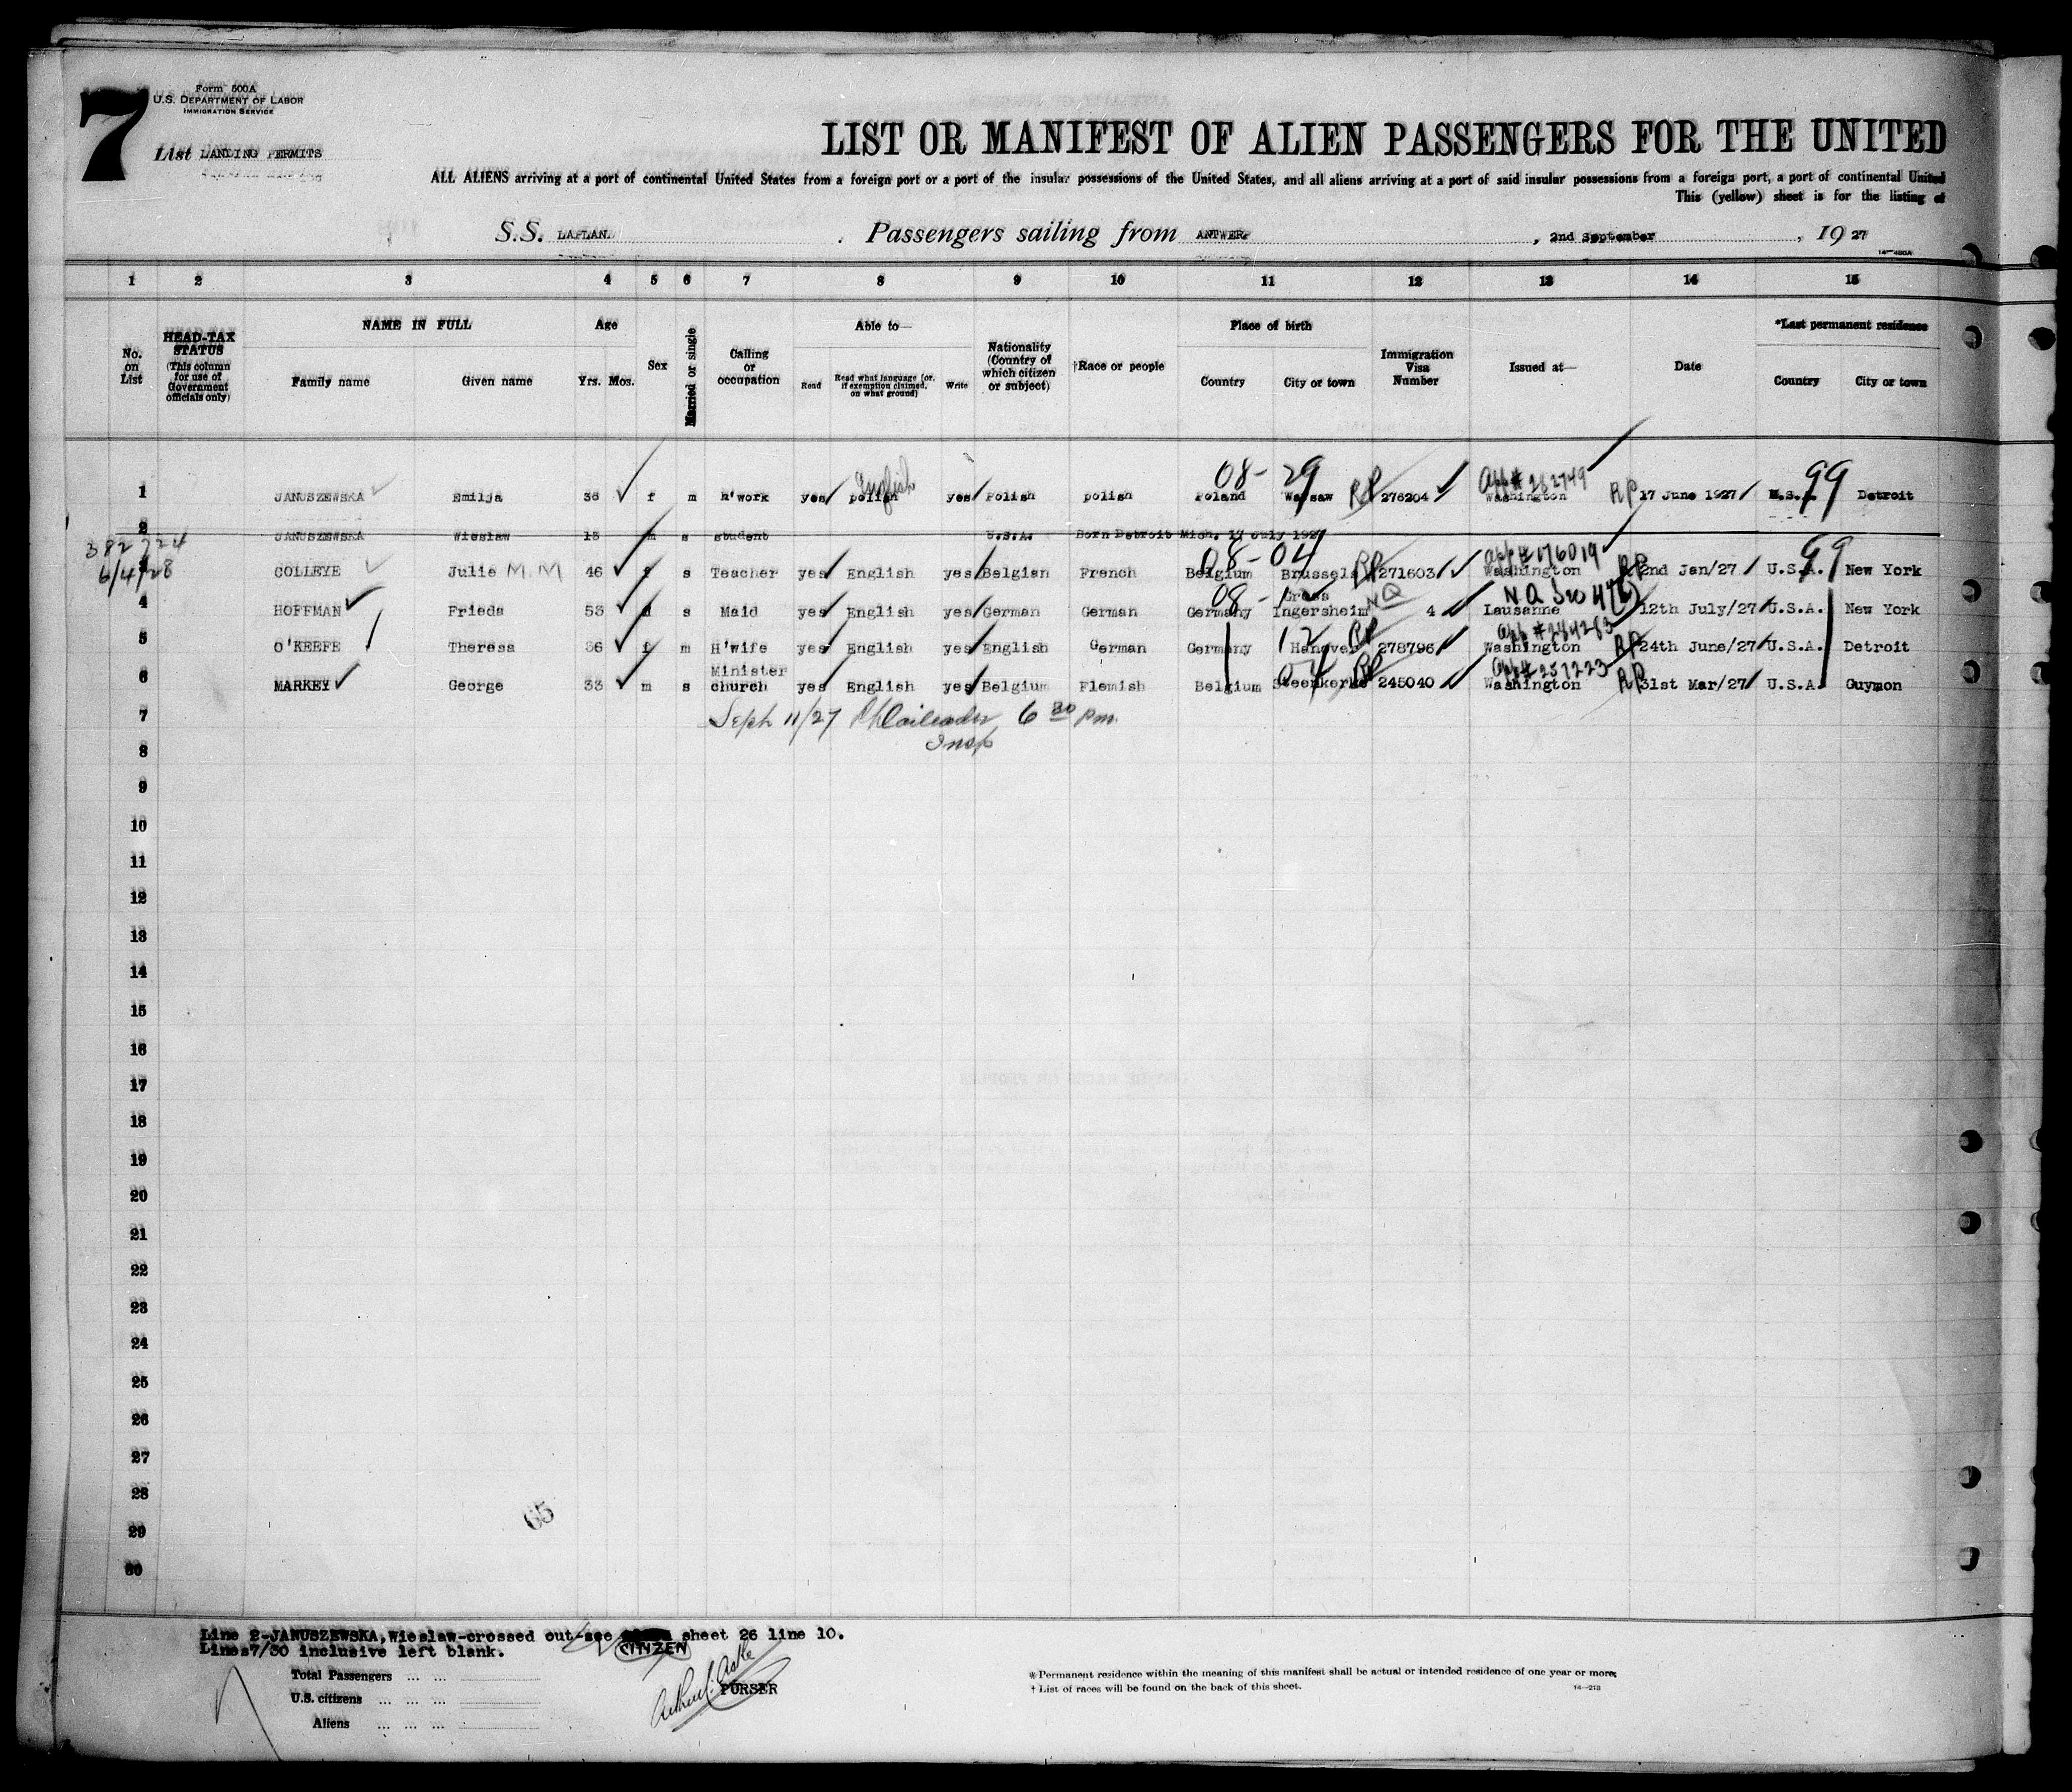 7
Form 500A
U.S. DEPARTMENT OF LABOR
IMMIGRATION SERVICE
List LANDING PERMITS
LIST OR MANIFEST OF ALIEN PASSENGERS FOR THE UNITED
ALL ALIENS arriving at a port of continental United States from a foreign port or a port of the insular possessions of the United States, and all aliens arriving at a port of said insular possessions from a foreign port, a port of continental United
This (yellow) sheet is for the listing of
S.S. LAPLAN Passengers sailing from ANTWERP , 2nd September , 19 27
14—480A
1 2 3 4 5 6 7 8 9 10 11 12 13 14 15
No. on List
HEAD-TAX STATUS (This column for use of Government officials only)
NAME IN FULL
Family name Given name
Age
Yrs. Mos.
Sex
Married or single
Calling or occupation
Able to—
Read Read what language (or, if exemption claimed, on what ground) Write
Nationality (Country of which citizen or subject)
†Race or people
Place of birth
Country City or town
Immigration Visa Number
Issued at—
Date
*Last permanent residence
Country City or town
English 08- 29 RP App# 282749 99
1 JANUSZEWSKA Emilja 36 f m H'work yes polish yes Polish polish Poland Warsaw 276204 Washington RP 17 June 1927 U.S.A. Detroit
2 JANUSZEWSKA Wieslaw 15 m s student U.S.A. Born Detroit Mich. 17 July 192
382724
6/4/28
08-04 RP App# 176019 99
COLLEYE Julie M.M 46 f s Teacher yes English yes Belgian French Belgium Brussels 271603 Washington RP 2nd Jan/27 U.S.A. New York
08- NQ NQ 320 4
4 HOFFMAN Frieda 53 s Maid yes English yes German German Germany Ingersheim 4 Lausanne 12th July/27 U.S.A. New York
12 RP App# 284283
5 O'KEEFE Theresa 36 f m H'wife yes English yes English German Germany Hanover 278796 Washington RP 24th June/27 U.S.A. Detroit
04 RP App# 257223
6 MARKEY George 33 m s Minister church yes English yes Belgium Flemish Belgium Steenkerke 245040 Washington RP 31st Mar/27 U.S.A. Guymon
7 Sept 11/27 6 30 pm
Insp
8
9
10
11
12
13
14
15
16
17
18
19
20
21
22
23
24
25
26
27
28
29
30
65
Line 2-JANUSZEWSKA,Wieslaw-crossed out-see sheet 26 line 10.
CITIZEN
Lines7/30 inclusive left blank.
Total Passengers ... ...
U.S. citizens ... ... ...
Aliens ... ... ...
PURSER
*Permanent residence within the meaning of this manifest shall be actual or intended residence of one year or more.
†List of races will be found on the back of this sheet.
14—213